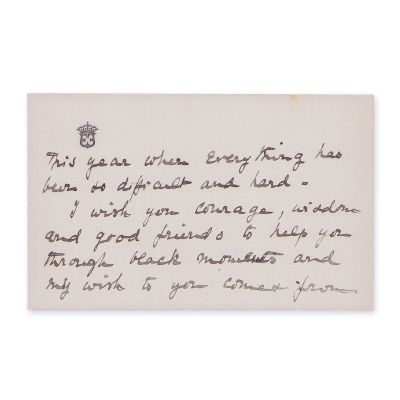 This year when Everything has
been so difficult and hard -
I wish you courage, wisdom
and good friends to help you
through black moments and
my wish to you comes from